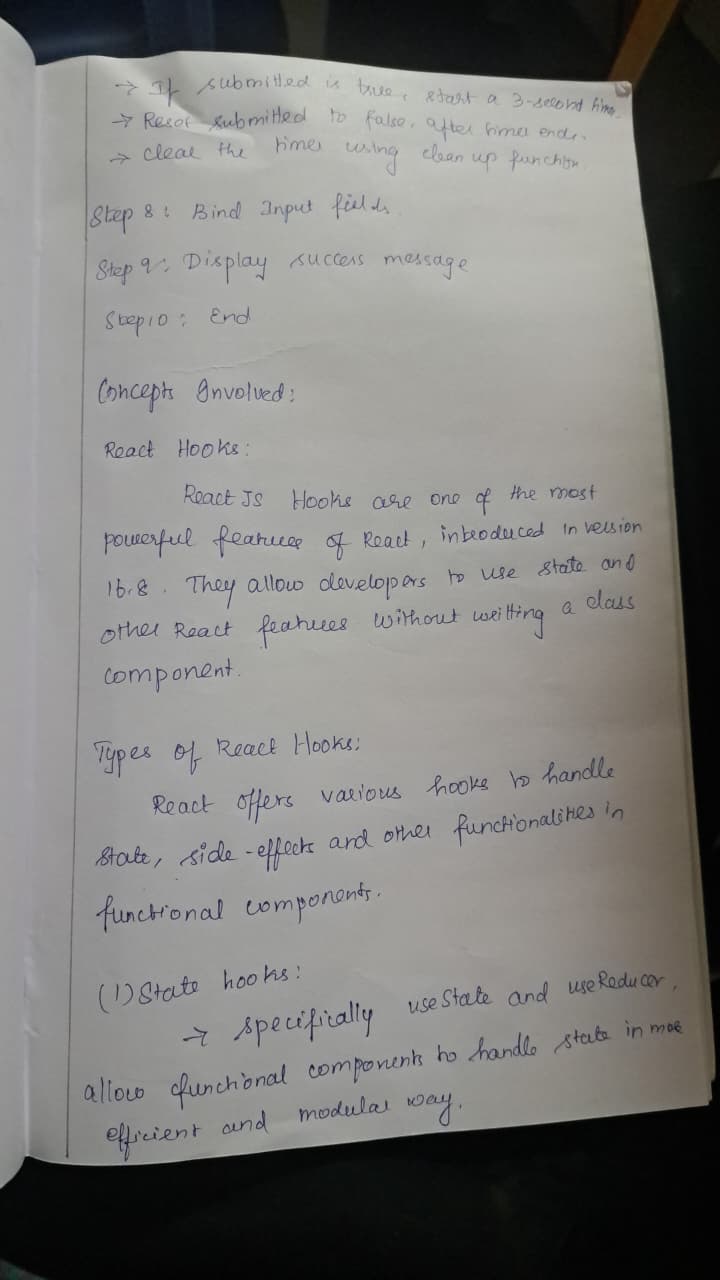 → If submitted is true, start a 3-second time.
→ Reset submitted to false, after timer ends.
→ clear the timer using clean up function
Step 8 : Bind Input fields
Step 9 : Display success message
Step 10 : End
Concepts Involved :
React Hooks :
React JS Hooks are one of the most
powerful features of React, introduced in version
16.8 . They allow developers to use state and
other React features without writting a class
component.
Types of React Hooks :
React offers various hooks to handle
state, side-effects and other functionalities in
functional components.
(1) State hooks :
→ specifically useState and useReducer,
allow functional components to handle state in more
efficient and modular way.